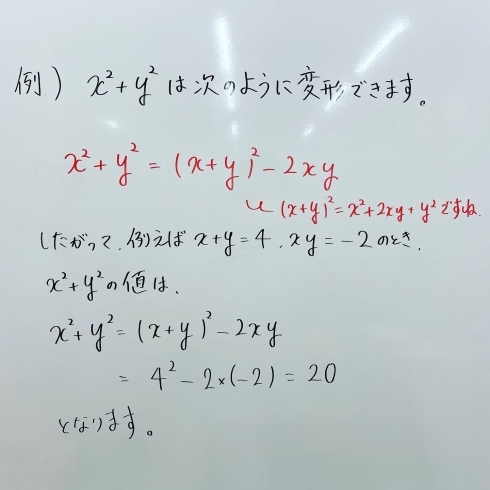 例) x²+y²は次のように変形できます。
x²+y² = (x+y)²-2xy
(x+y)²=x²+2xy+y²ですね.
したがって、例えば x+y=4, xy=-2のとき、
x²+y²の値は、
x²+y²=(x+y)²-2xy
= 4²-2×(-2) = 20
となります。